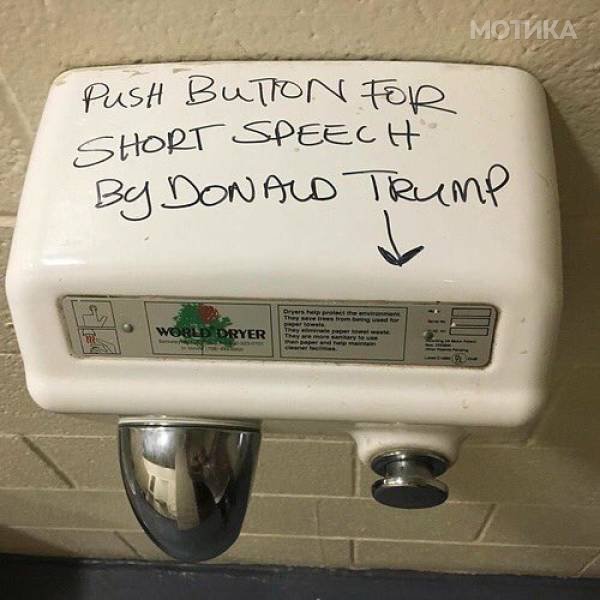 МОТИКА
PUSH BUTTON FOR
SHORT SPEECH
By DONALD TRUMP
WORLD DRYER
Dryers help protect the environment.
They save trees from being used for
paper towels.
They eliminate paper towel waste.
They are more sanitary to use
than paper and help maintain
cleaner facilities.